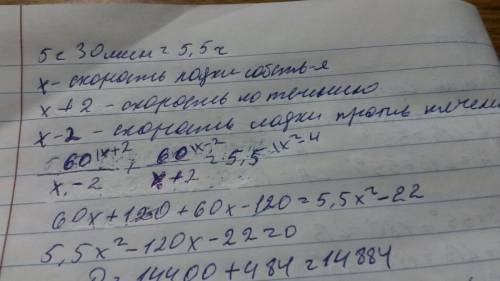 5 ч 30 мин = 5,5 ч
x - скорость лодки собств-я
x + 2 - скорость по течению
x - 2 - скорость лодки против течени
60|x+2 60|x-2 |x²-4
/ x - 2 + / x + 2 = 5,5
60x + 120 + 60x - 120 = 5,5x² - 22
5,5x² - 120x - 22 = 0
D = 14400 + 484 = 14884